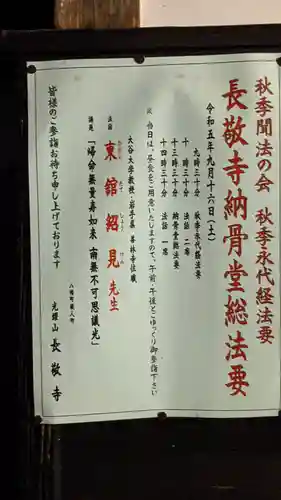 秋季聞法の会　秋季永代経法要
長敬寺納骨堂総法要
令和五年九月十六日（土）
九時三十分　秋季永代経法要
十時三十分　法話　二席
十三時三十分　納骨堂総法要
十四時三十分　法話　一席
当日は、昼食をご用意いたしますので、午前・午後とごゆっくり御参詣下さい
大谷大学教授・岩手県　善林寺住職
法話　東舘紹見先生
ひがし　だて　しょう　けん
講題　「帰命無量寿如来　南無不可思議光」
皆様のご参詣お待ち申し上げております
八幡町蔵人町
光耀山　長敬寺